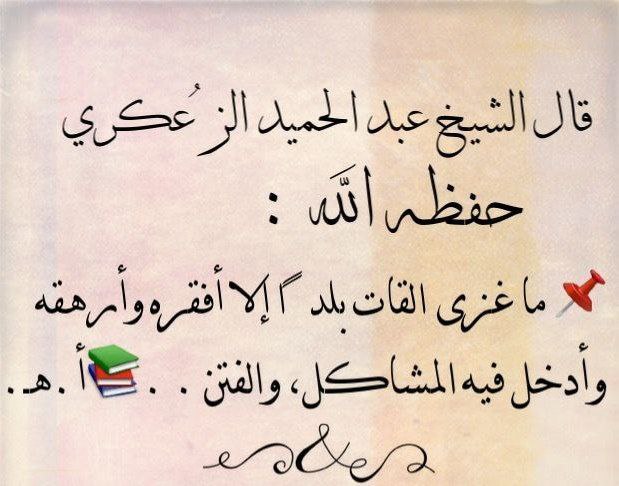 قال الشيخ عبد الحميد الزُعكري
حفظه الله :
📌 ما غزى القات بلداً إلا أفقره وأرهقه
وأدخل فيه المشاكل، والفتن . . 📚أ.هـ.